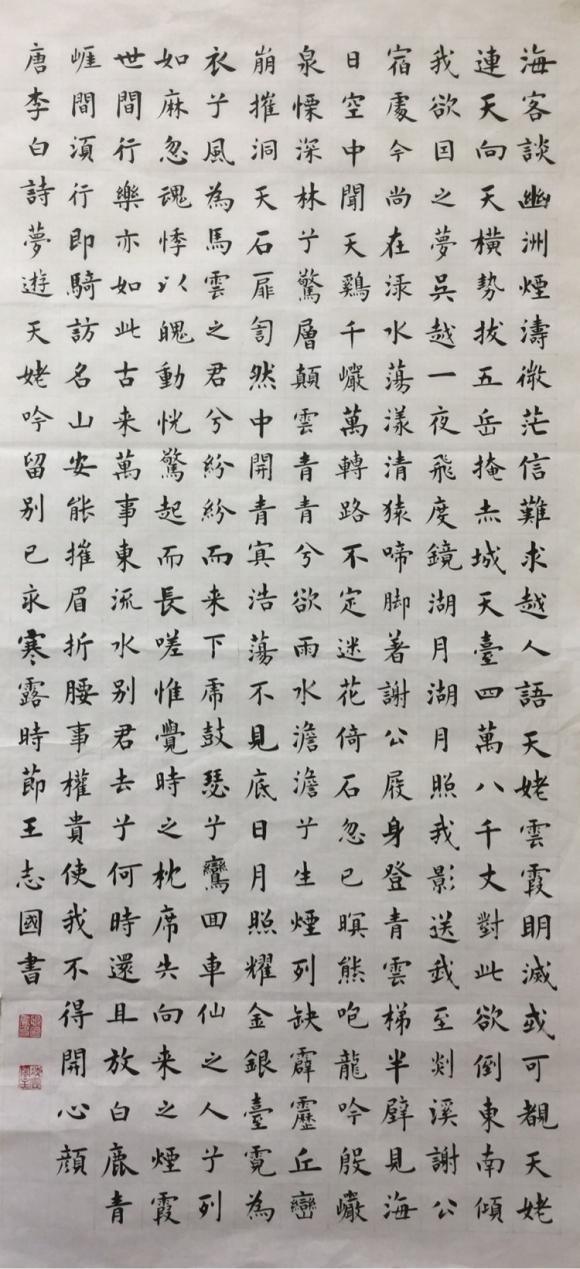 海客談幽洲煙濤微茫信難求越人語天姥雲霞明滅或可覩天姥
連天向天橫勢拔五岳掩赤城天臺四萬八千丈對此欲倒東南傾
我欲因之夢吳越一夜飛度鏡湖月湖月照我影送我至剡溪謝公
宿處今尚在淥水蕩漾清猿啼脚著謝公屐身登青雲梯半壁見海
日空中聞天鷄千巖萬轉路不定迷花倚石忽已暝熊咆龍吟殷巖
泉慄深林兮驚層顛雲青青兮欲雨水澹澹兮生煙列缺霹靂丘巒
崩摧洞天石扉訇然中開青冥浩蕩不見底日月照耀金銀臺霓為
衣兮風為馬雲之君兮紛紛而来下虎鼓瑟兮鸞回車仙之人兮列
如麻忽魂悸以魄動恍驚起而長嗟惟覺時之枕席失向来之煙霞
世間行樂亦如此古来萬事東流水別君去兮何時還且放白鹿青
崕間須行即騎訪名山安能摧眉折腰事權貴使我不得開心顔
唐李白詩夢遊天姥吟留別已亥寒露時節王志國書